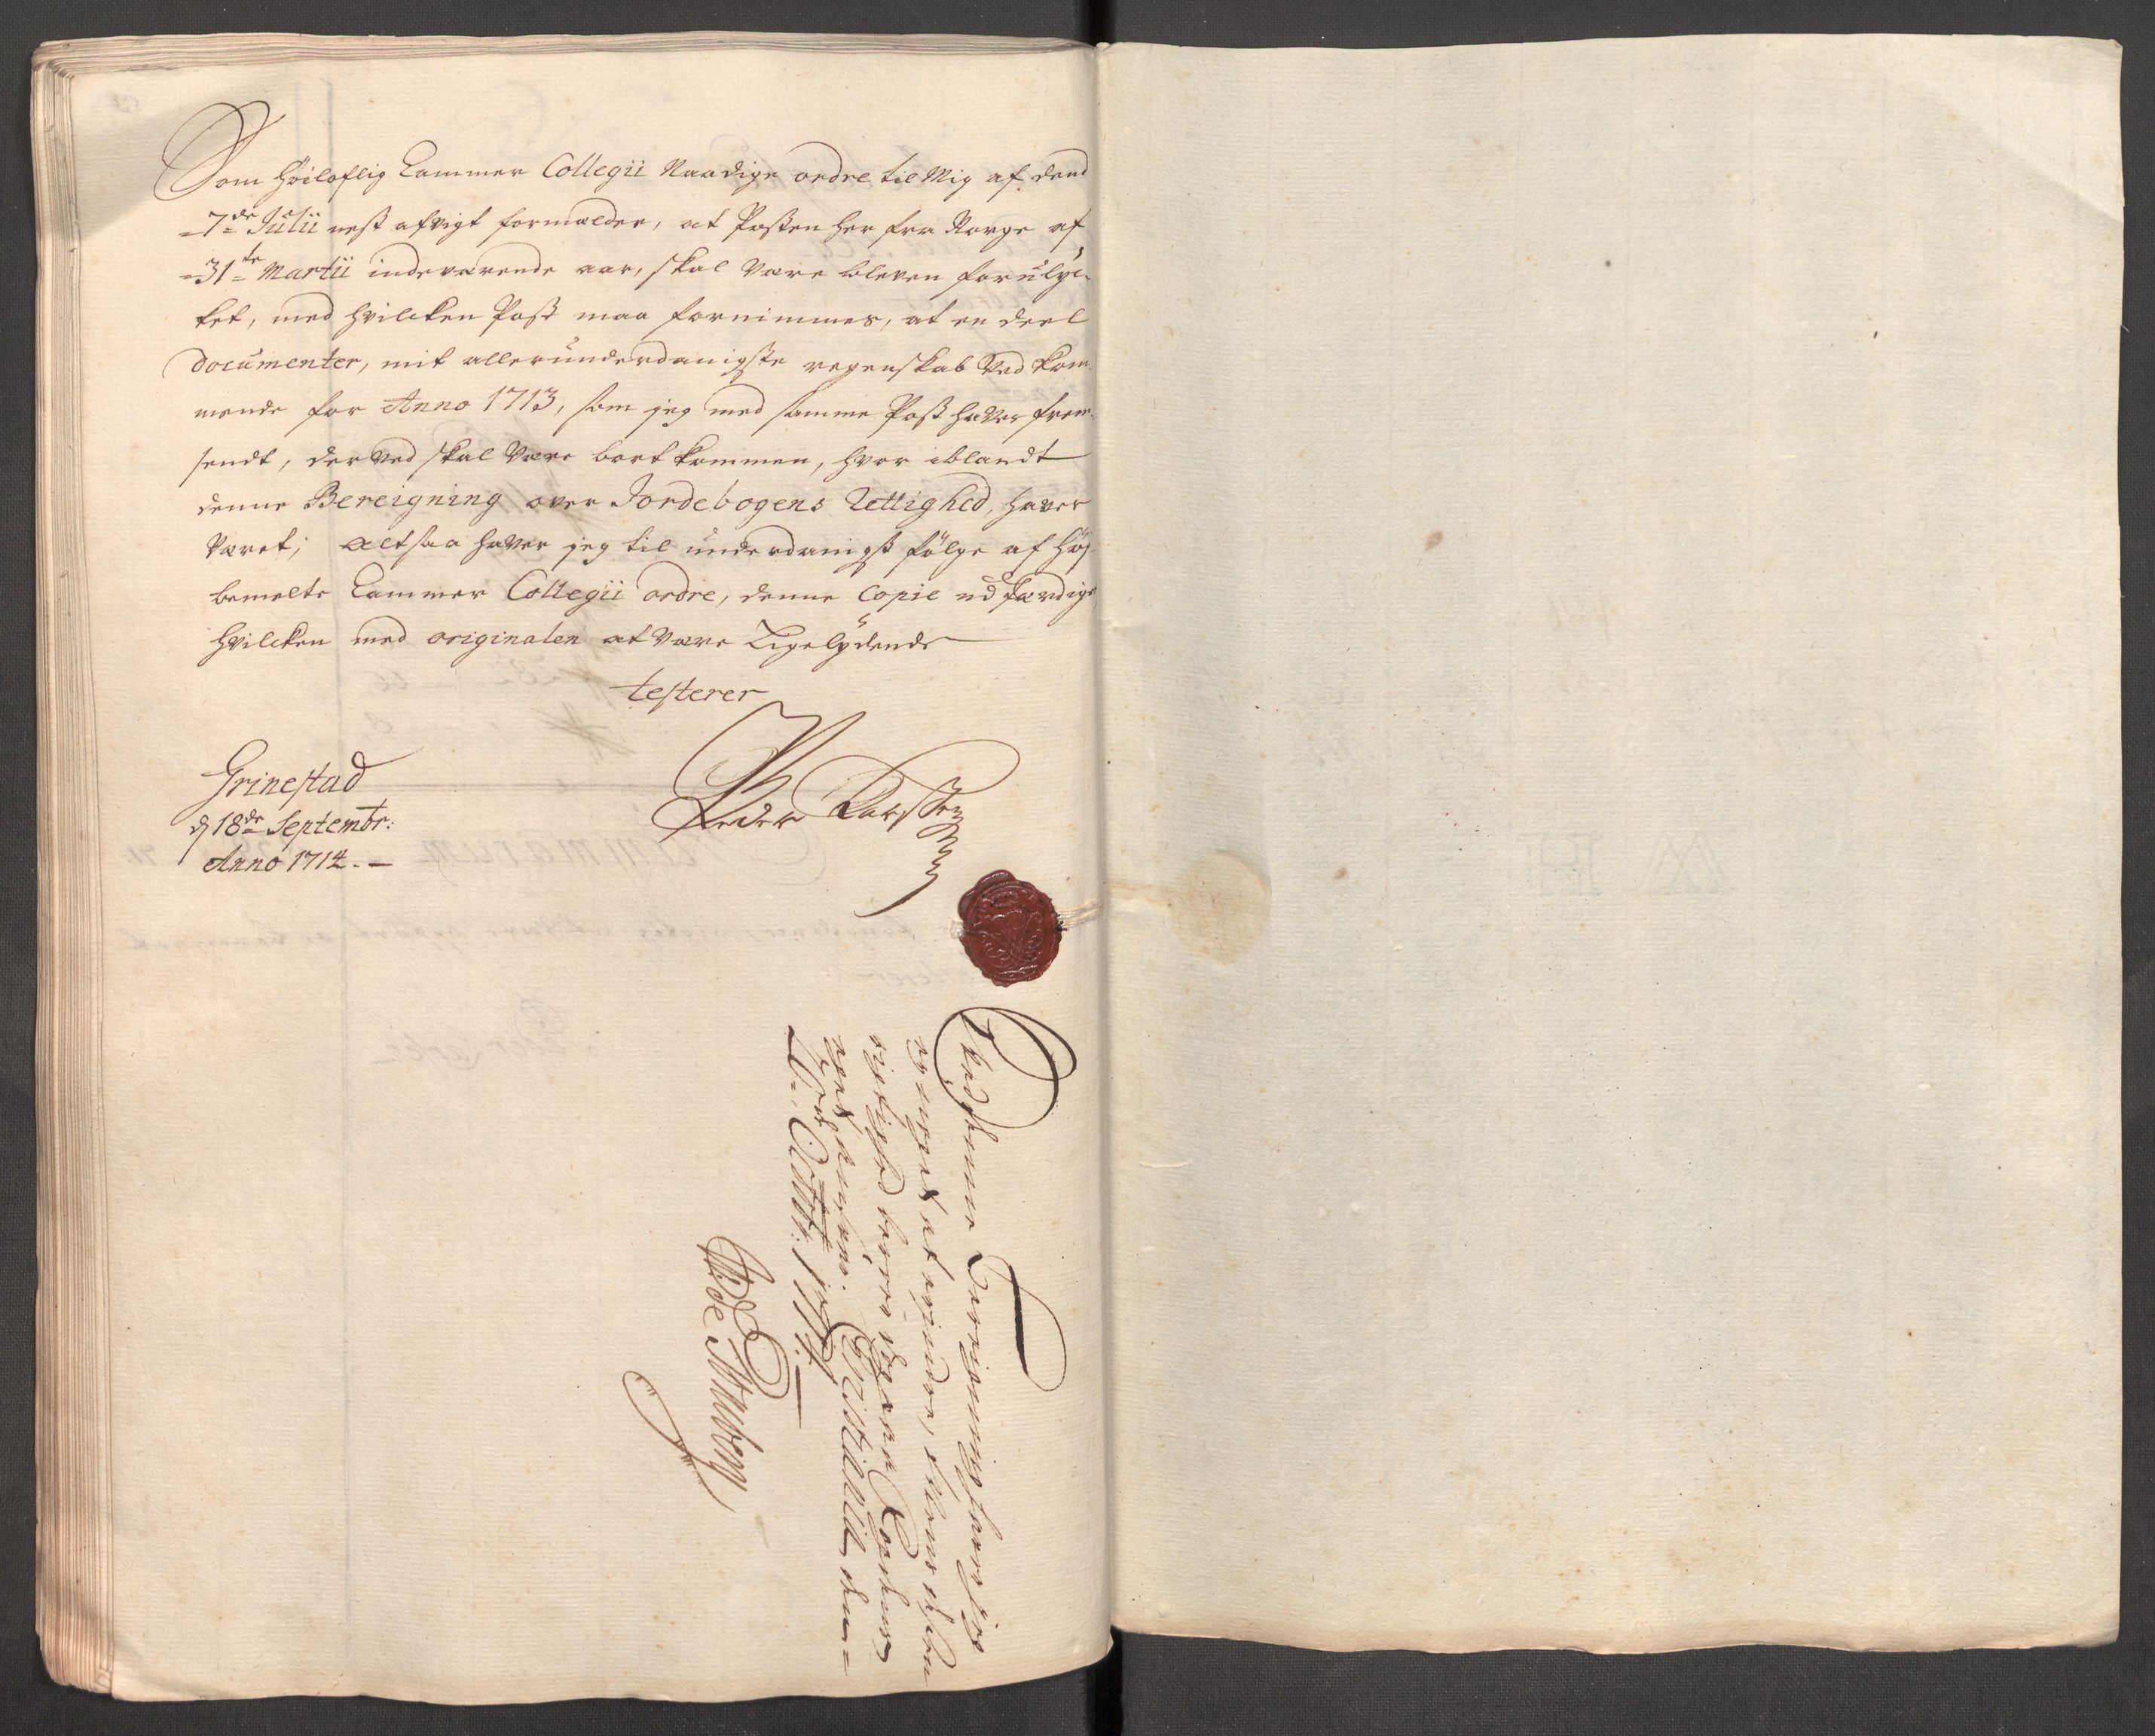 Som høiloflig Cammer Collegii Naadige ordre til Mig af dend
=7de= Julii nest afvigt formelder, at Posten her fra Norge af
=31te= Martii indeværende aar, skal være bleven forulyc-
ket, med hvilcken Post maa fornimmes, at en deel
documenter, mit allerunderdanigste regenskab ved kom
mende for Anno 1713, som jeg med samme Post haver frem-
sendt, derved skal være bort kommen, hvor iblandt
denne Bereigning over Jordebogens Rettighed, haver
været; altsaa haver jeg til underdanigst følge af høj-
bemelte Cammer Collegii ordre, denne Copie udfærdige
hvilcken med originalen at være Ligelydende
testerer
Grinestad
d 18de Septembr:
Anno 1714. -
Peder Larssen
Ved denne Bereigning haver jeg
at erindre,
rigtighed
Christiania den
Octobr: 1714.